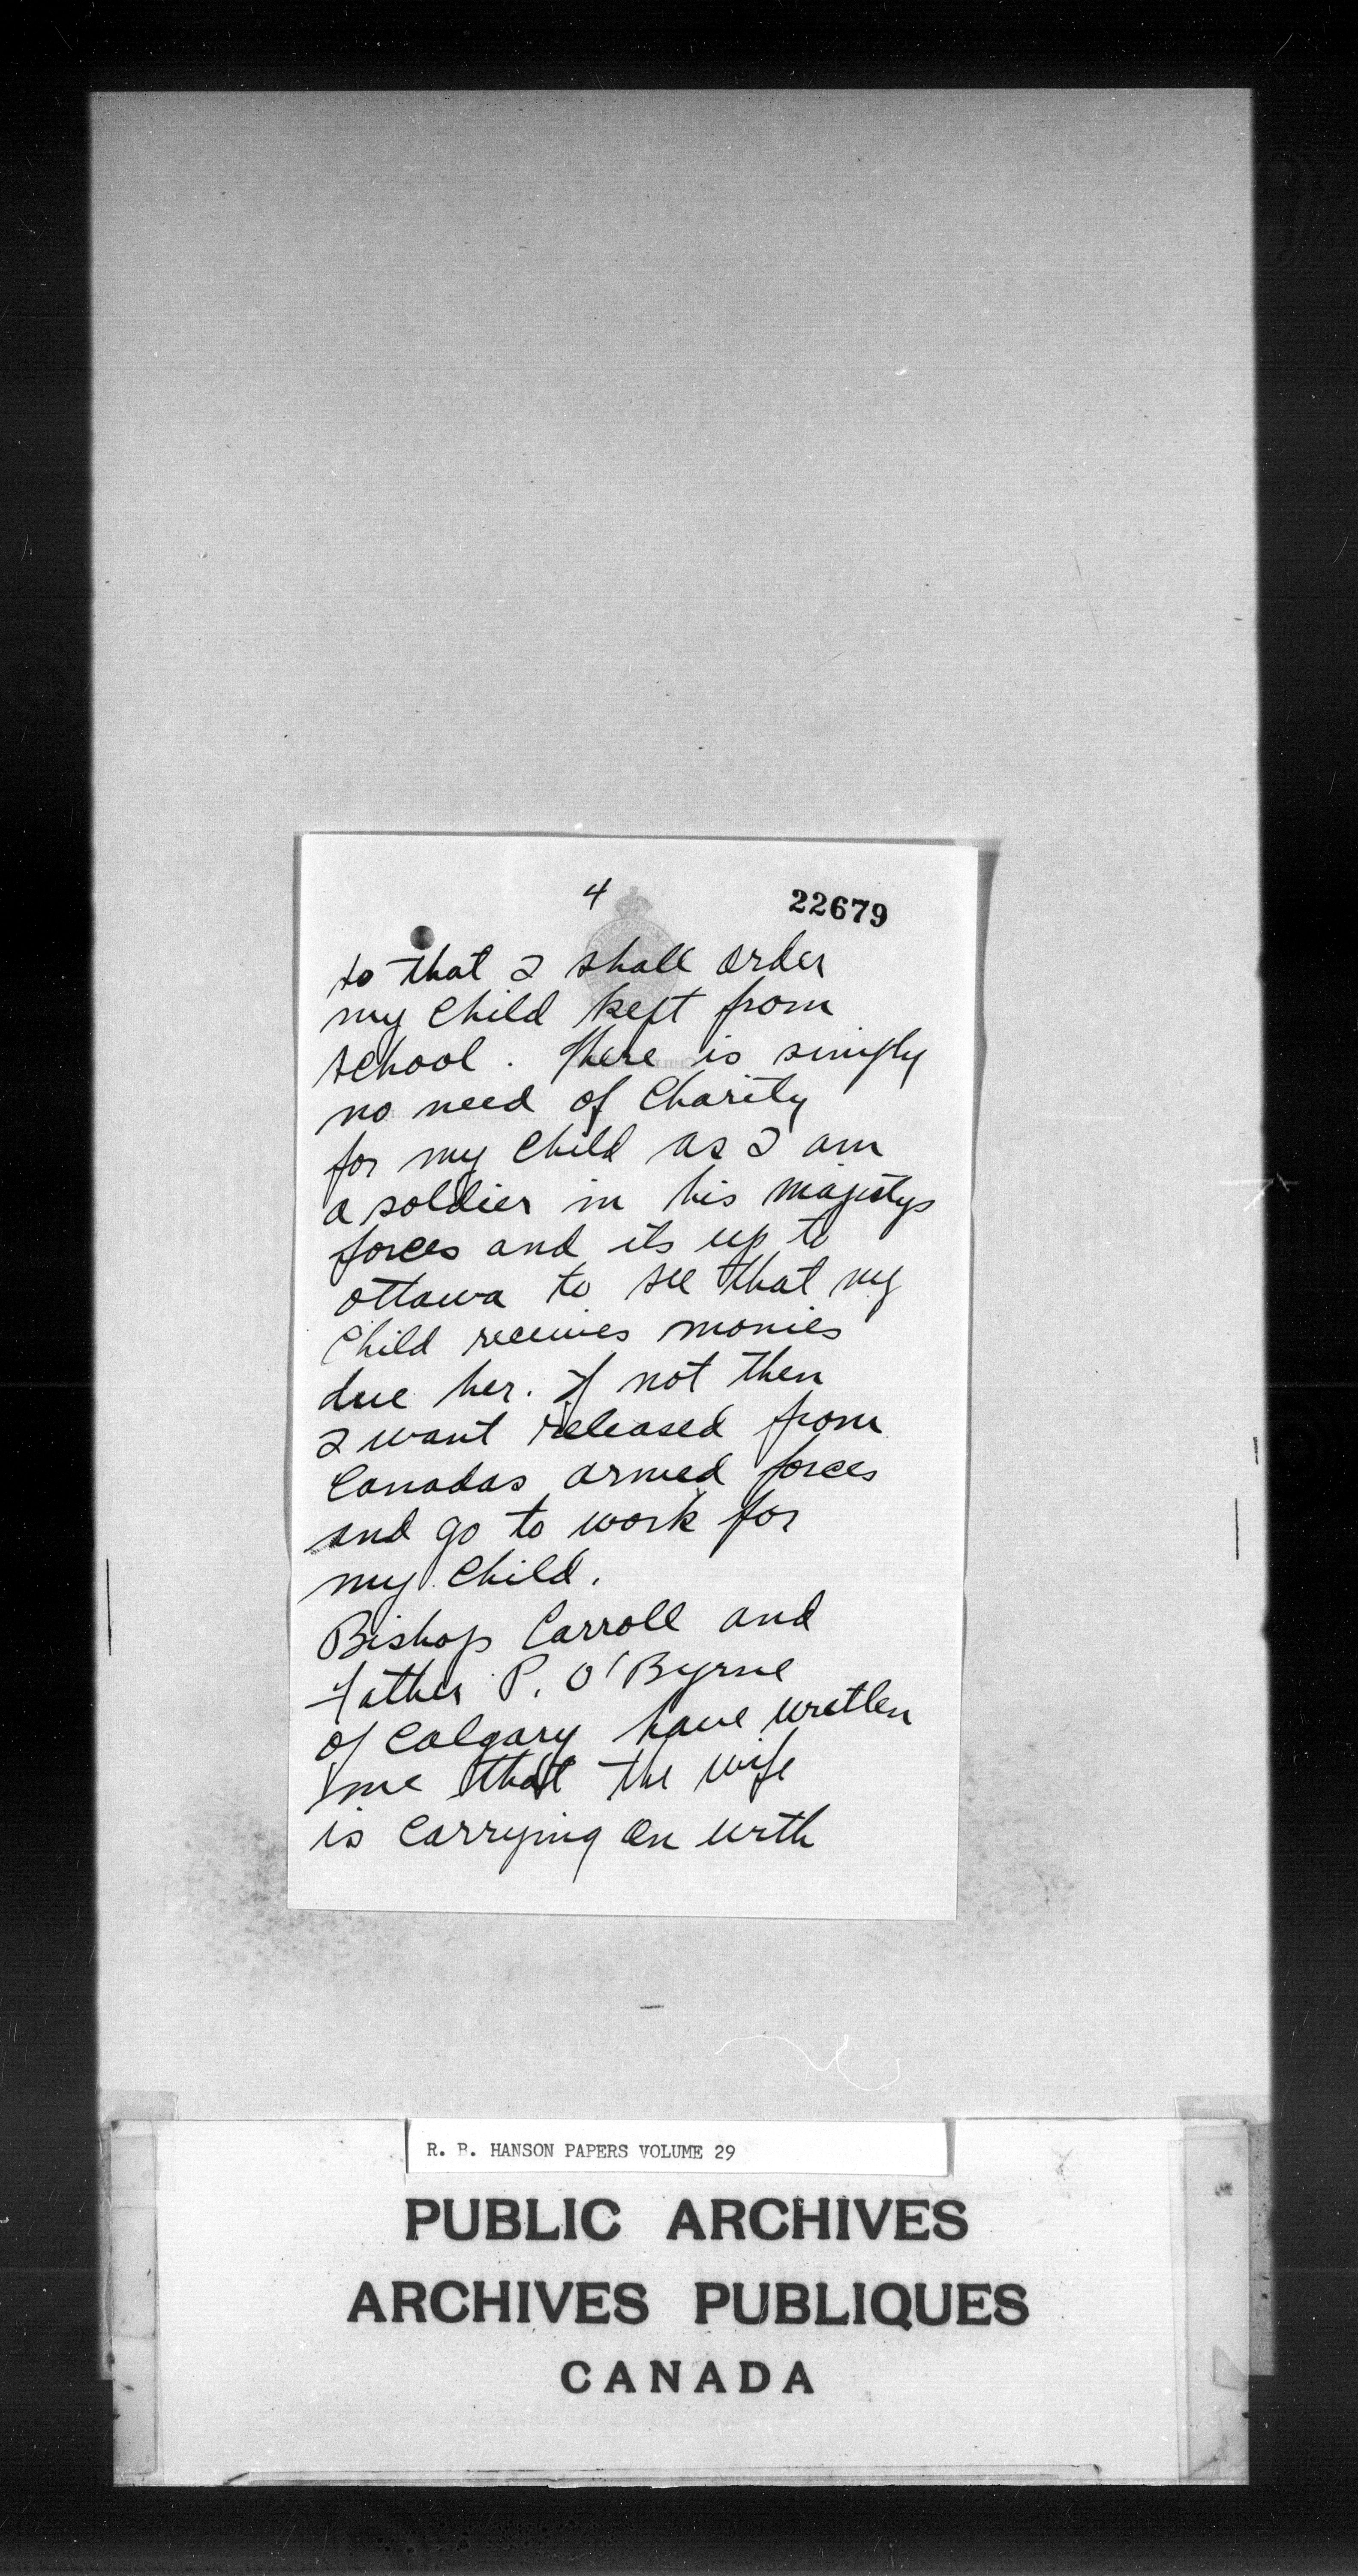 4
22679
to that I shall order
my Child kept from
school. There is simply
no need of Charity
for my Child as I am
a soldier in his majestys
forces and its up to
ottawa to see that my
Child receives monies
due her. If not then
I want released from
Canadas armed forces
and go to work for
my Child.
Bishop Carroll and
Father P. O'Byrne
of Calgary have written
me that the wife
is carrying on with
R. B. HANSON PAPERS VOLUME 29
PUBLIC ARCHIVES
ARCHIVES PUBLIQUES
CANADA